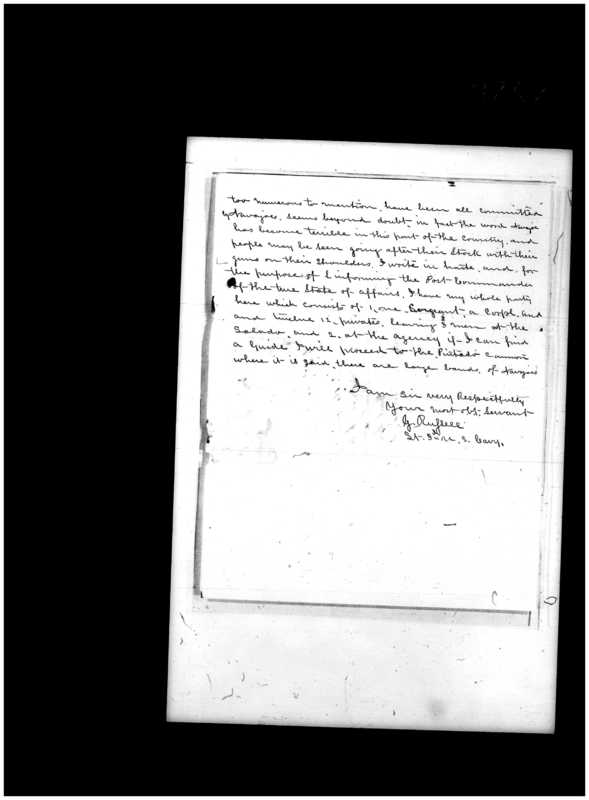 too numerous to mention, have been all committed
by Navajoes, seems beyond doubt, in fact the word Navajoe
has become terrible in this part of the country, and
people may be seen going after their Stock with their
guns on their Shoulders. I write in haste, and for
the purpose of informing the Post Commander
of the true State of affairs, I have my whole party
here which consists of 1, one Sergeant, a Corpl. and
and twelve 12, privates, leaving 3 men at the
Salado, and 2, at the agency if I can find
a Guide I will proceed to the Cannon
where it is said, there are large bands, of Navajoes
I am Sir very Respectfully
Your most obt. Servant
G. Russell
Lt. 3rd U. S. Cavy.